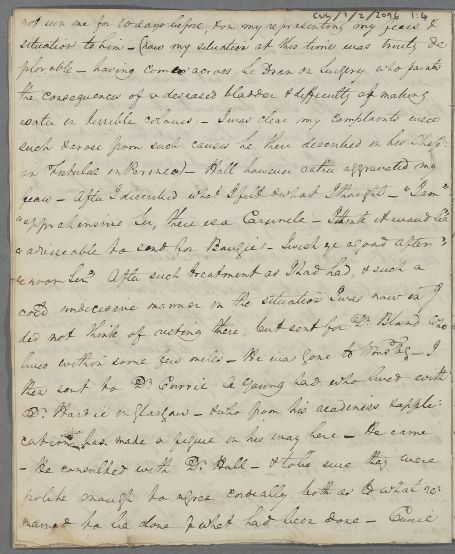 CUL/1/2/2096 1:4
not seen me for 10 days before, & on my representing my fears &
situation to him – Now my situation at this time was truly de
plorable – having come across Le Dran on Surgery who paints
the consequences of a deseased bladder & difficulty of making
water in terrible colours – I was clear my complaints were
such & arose from such causes he then described in his Chap:
on Fistulas in Perineo) – Hall however rather aggravated my
fears – After I described what I felt & what I thought – "I am"
"apprehensive Sir, there is a Caruncle – I think it would be"
"adviseable to send for Bougies – I wish ye a good after"
"noon Sir" After such treatment as I had had, & such a
cold undecisive manner in the situation I was now in I
did not think of resting there, but sent for Dr. Bland who
lives within some few miles – He was gone to – I
then sent to Dr. Currie a young lad who lived with
Dr. Hardie in Glasgow – & who from his readiness & appli:
cation has made a figure in his way here – He came
– He consulted with Dr. Hall – & to be sure they were
polite enough to agree cordially both as to what re
mained to be done & what had been done – Currie